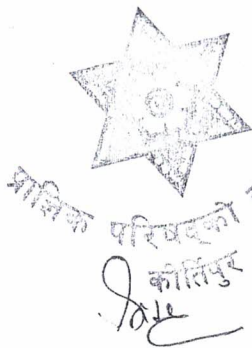 प्राज्ञिक परिषद्को
कीर्तिपुर